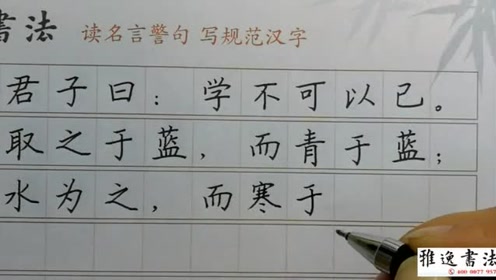 書法 读名言警句 写规范汉字
君子曰：学不可以已。
取之于蓝，而青于蓝；
水为之，而寒于
雅逸书法